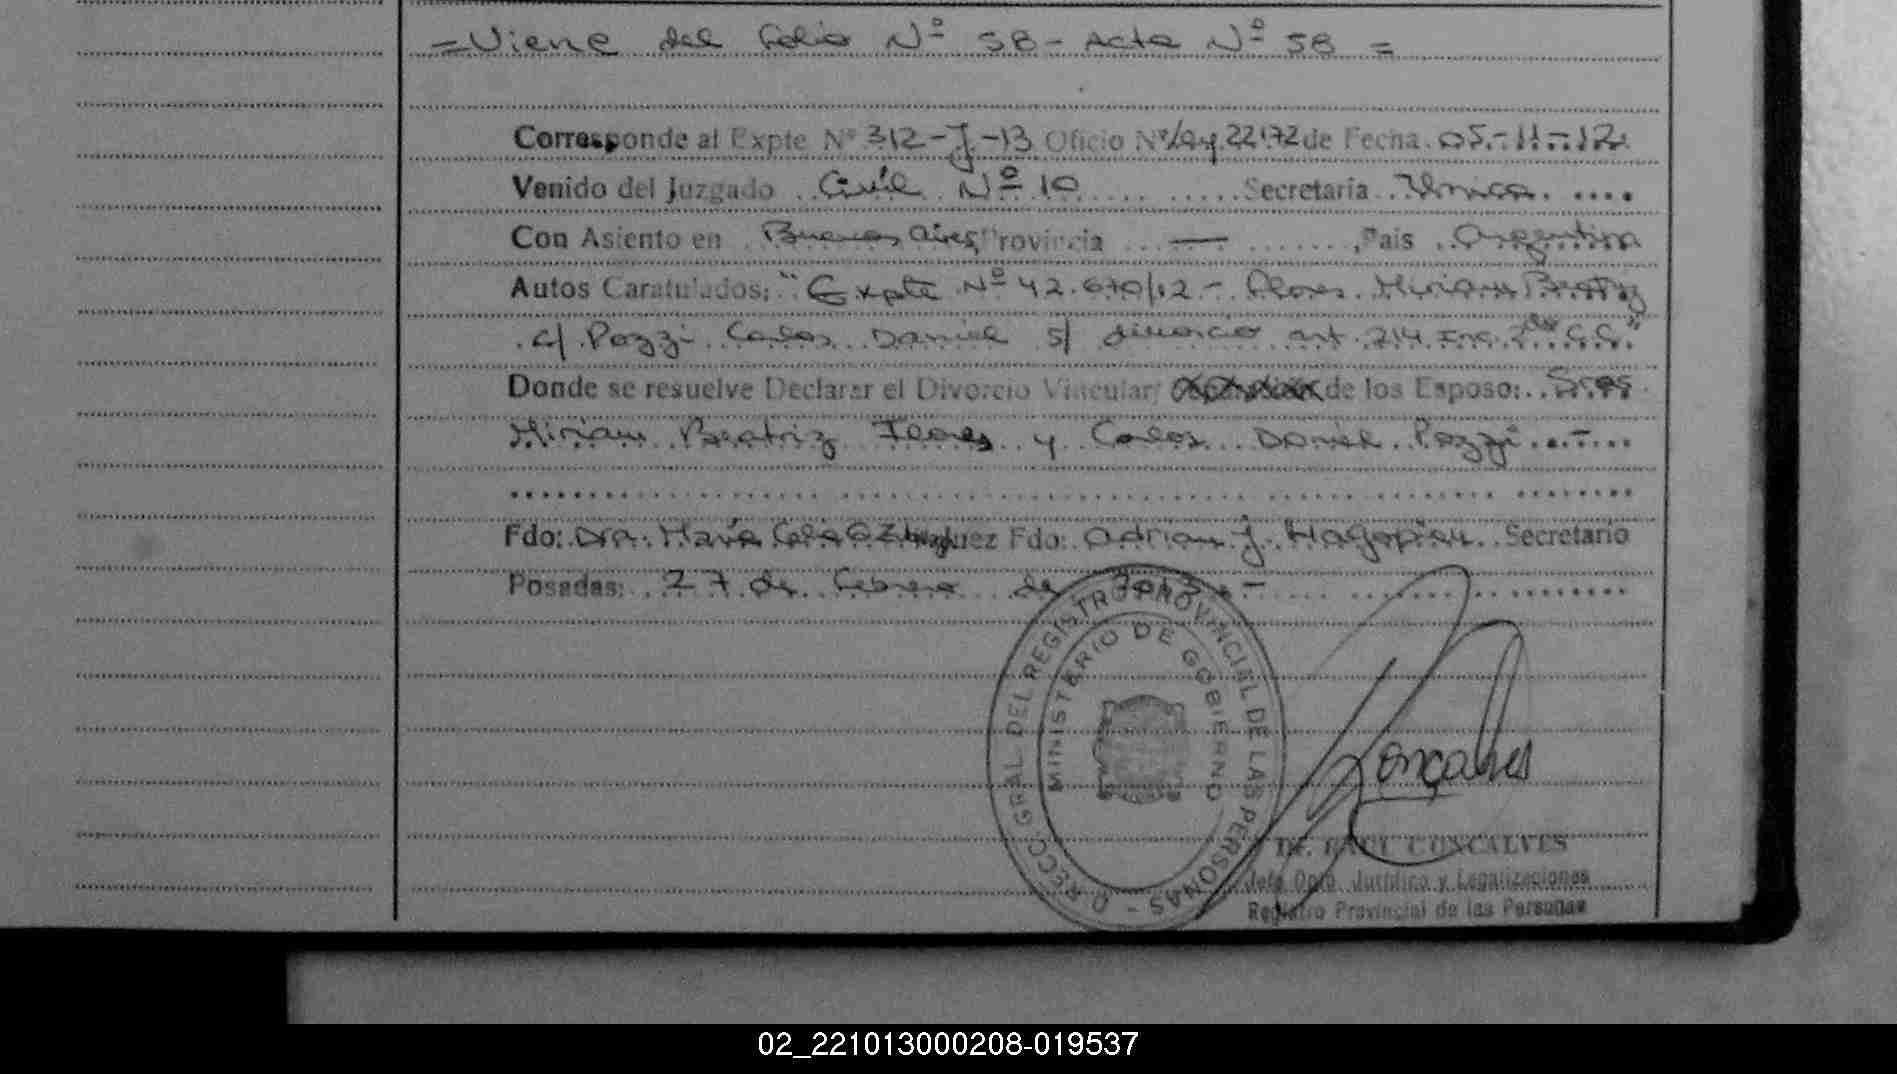 =Viene del folio Nº 58- Acta Nº 58 =
Corresponde al Expte Nº 312-J-13 Oficio Nº/Ley 22172 de Fecha 05-11-12
Venido del Juzgado Civil Nº 10 Secretaria Única
Con Asiento en Buenos Aires Provincia — , Pais Argentina
Autos Caratulados: "Expte Nº 42.670/12 - Flores Miriam Beatriz
c/ Pozzi Carlos Daniel s/ divorcio art. 214 Inc. 2do C.C."
Donde se resuelve Declarar el Divorcio Vincular, de los Esposo: Sres
Miriam Beatriz Flores y Carlos Daniel Pozzi.-
Fdo: Dra. María Juez Fdo: Adrian J. Hagopian Secretario
Posadas: 27 de febrero de 2013.-
DIRECC. GRAL. DEL REGISTRO PROVINCIAL DE LAS PERSONAS -
MINISTERIO DE GOBIERNO
Gonçalves
Dr. RAUL GONCALVES
Jefe Dpto. Jurídico y Legalizaciones
Registro Provincial de las Personas
02_221013000208-019537